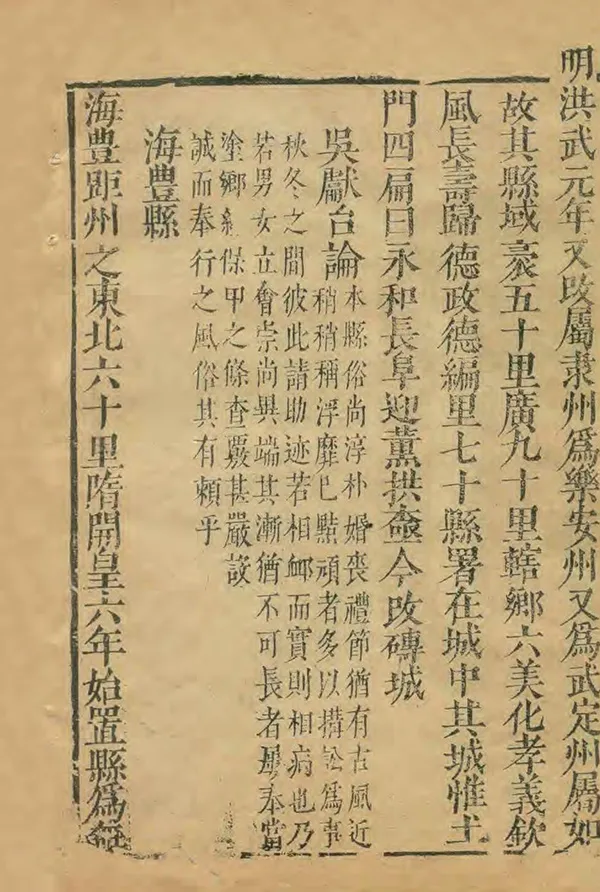 明洪武元年又改屬隶州爲樂安州又爲武定州屬如
故其縣域袤五十里廣九十里轄鄉六美化孝義欽
風長壽歸德政德編里七十縣署在城中其城惟土
門四扁曰永和長阜迎薰拱壼今改磚城
吳獻台論
本縣俗尚淳朴婚喪禮節猶有古風近
稍稍稱浮靡已黠頑者多以搆訟爲事
秋冬之間彼此請助迹若相衈而實則相病也乃
若男女立會崇尚異端其漸猶不可長者畢奉當
塗鄉約保甲之條查覈甚嚴該
誠而奉行之風俗其有頼乎
海豊縣
海豊距州之東北六十里隋開皇六年始置縣爲無